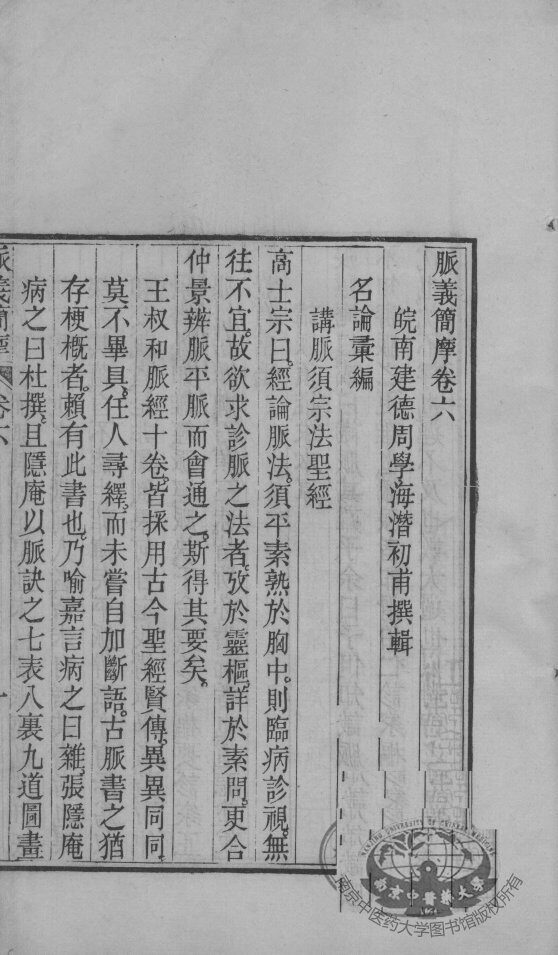 脈義簡摩卷六
皖南建德周學海潛初甫撰輯
名論彙編
講脈須宗法聖經
高士宗曰。經論脈法。須平素熟於胸中。則臨病診視。無
往不宜。故欲求診脈之法者。攷於靈樞。詳於素問。更合
仲景辨脈平脈而會通之。斯得其要矣。
王叔和脈經十卷。皆採用古今聖經賢傳。異異同同
莫不畢具。任人尋繹。而未嘗自加斷語。古脈書之猶
存梗概者。賴有此書也。乃喻嘉言病之曰雜。張隱庵
病之曰杜撰。且隱庵以脈訣之七表八裏九道圖畫
脈義簡摩 卷六 一
南京中醫藥大學
NANJING UNIVERSITY OF CHINESE MEDICINE
南京中医药大学图书馆版权所有